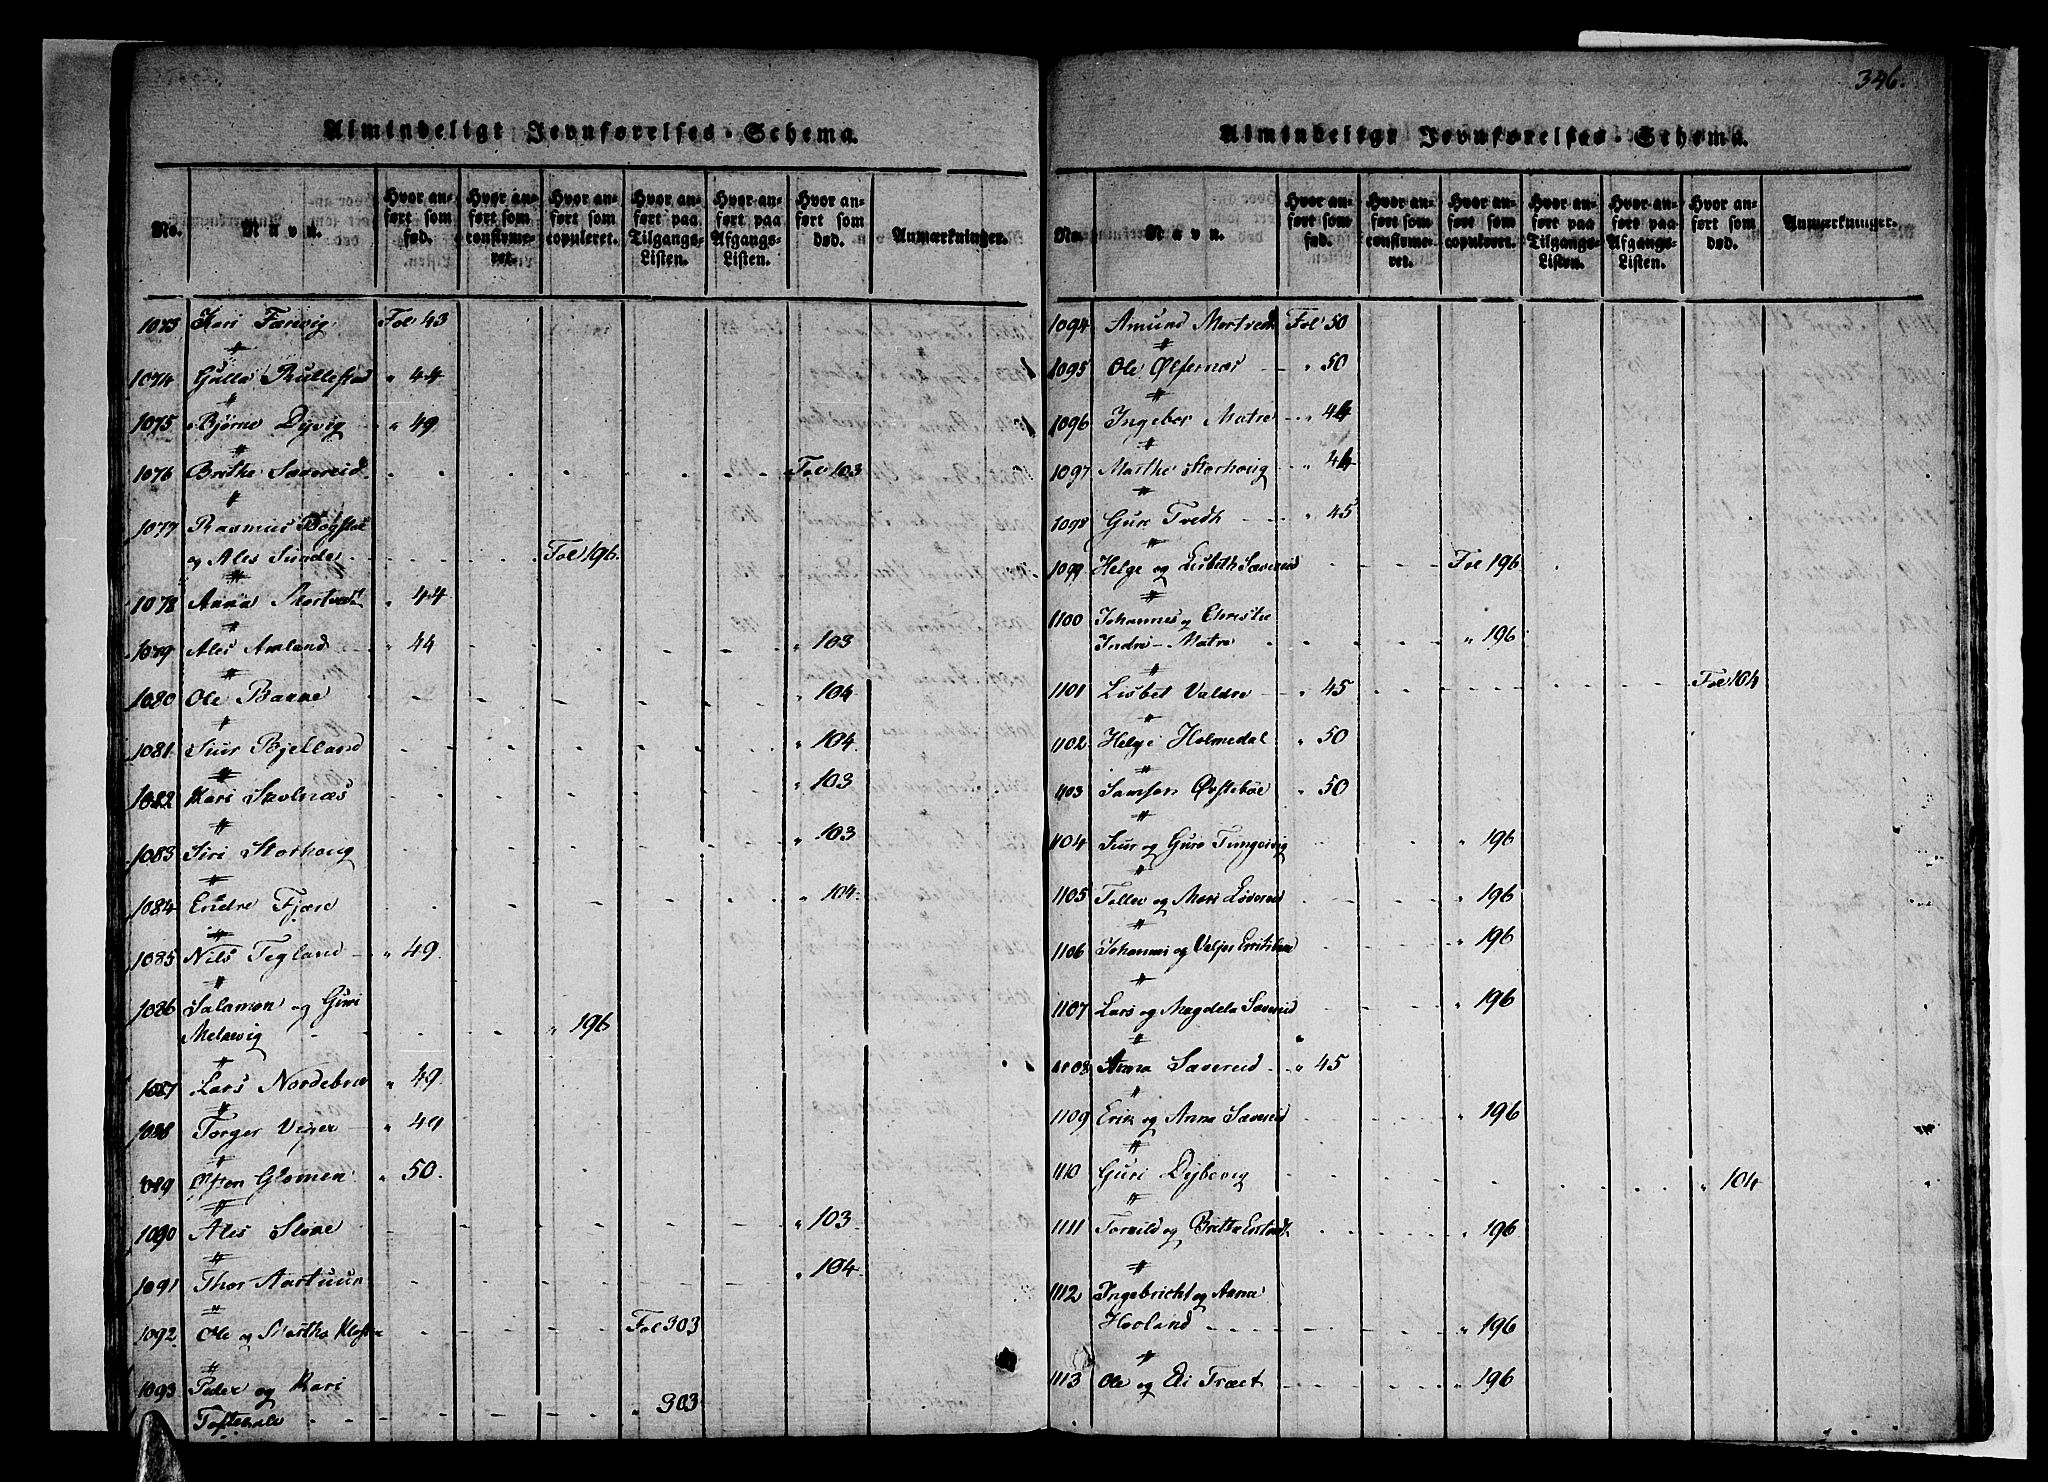 346.
Almindeligt Jevnførelses-Schema.
No. Navn. Hvor anført som fød. Hvor anført som confirmeret. Hvor anført som copuleret. Hvor anført paa Tilgangs-Listen. Hvor anført paa Afgangs-Listen. Hvor anført som død. Anmærkninger.
1073 Kari Færevig Fol 43
1074 Gulla Rullestad " 44
1075 Bjørne Dyvig " 49
1076 Brithe Sævereid Fol 103
1077 Rasmus Bogstad
og Ales Sunde Fol 196.
1078 Anna Mortvedt " 44
1079 Ales Amland " 44 " 103
1080 Ole Banne " 104
1081. Siur Bjelland " 104.
1082 Kari Skolnæs " 103
1083 Siri Storhoug " 103
1084 Endre Fjære " 104.
1085 Nils Tegland " 49.
1086 Salamon og Guri
Melkevig " 196
1087 Lars Nordebroe " 49
1088 Torger Viker " 49
1089 Østen Glomen " 50.
1090 Ales " 103
1091 Thor Aartuun " 104
1092 Ole og Martha Fol 303
1093 Peder og Kari
Toftekale " 303
Almindeligt Jevnførelses-Schema.
No. Navn. Hvor anført som fød. Hvor anført som confirmeret. Hvor anført som copuleret. Hvor anført paa Tilgangs-Listen. Hvor anført paa Afgangs-Listen. Hvor anført som død. Anmærkninger.
1094 Amund Mortvedt Fol 50
1095 Ole Ølfernæs " 50
1096 Ingebor Matre " 44
1097 Marthe Storhoug " 44
1098 Guro Tvedh " 45
1099 Helge og Lisbeth Sævereid Fol 196
1100 Johannes og Christie
Indre-Matre " 196
1101 Lisbet Valdre " 45 Fol 104
1102 Helge Holmedal " 50
1103 Samson Øvstebøe " 50
1104 Siur og Guro Tungesvig " 196
1105 Tollev og Mari " 196
1106 Johannes og Valjer " 196
1107 Lars og Magdela Sævereid " 196
1108 Anna Sævereid " 45
1109 Erik og Anna Sævereid " 196
1110 Guri Dybevig " 104
1111 Tormild og Britta " 196
1112 Ingebricht og Anna
Hovland " 196
1113 Ole og Eli Træet " 196